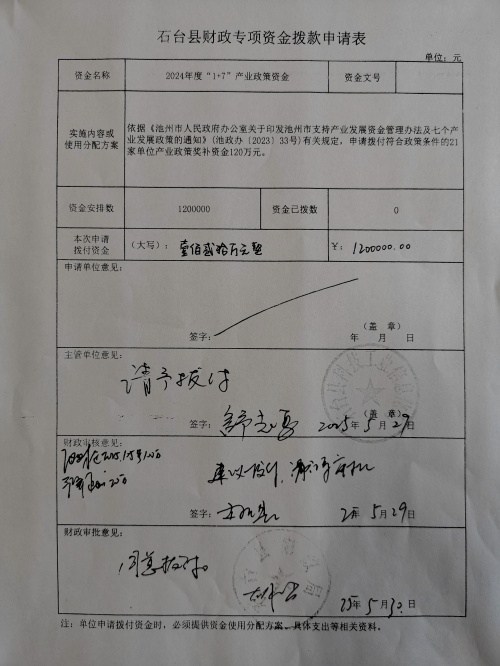 石台县财政专项资金拨款申请表
单位：元
资金名称 2024年度“1+7”产业政策资金 资金文号
实施内容或使用分配方案
依据《池州市人民政府办公室关于印发池州市支持产业发展资金管理办法及七个产
业发展政策的通知》（池政办〔2023〕33号）有关规定，申请拨付符合政策条件的21
家单位产业政策奖补资金120万元。
资金安排数 1200000 资金已拨数 0
本次申请拨付资金 （大写）：壹佰贰拾万元整 ￥：1200000.00
申请单位意见：
（盖 章）
签字： 年 月 日
主管单位意见：
请予拨付
（盖 章）
签字： 2025年5月29日
财政审核意见：
签字： 25年5月29日
财政审批意见：
同意拨付
25年5月30日
注：单位申请拨付资金时，必须提供资金使用分配方案、具体支出等相关资料。